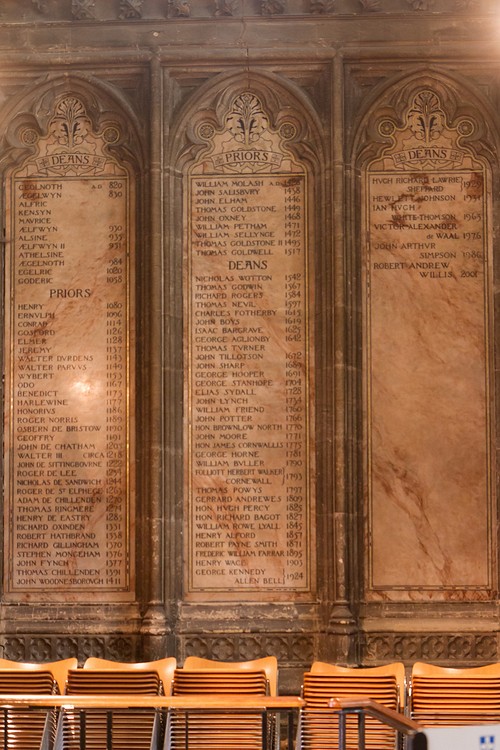 DEANS
CEOLNOTH A.D. 820
ÆGELWYN 830
ALFRIC
KENSYN
MAVRICE
ÆLFWYN 930
ALSINE 935
ÆLFWYN II 951
ATHELSINE
ÆGELNOTH 984
EGELRIC 1020
GODERIC 1058
PRIORS
HENRY 1080
ERNVLPH 1096
CONRAD 1114
GOSFORD 1126
ELMER 1128
JEREMY 1137
WALTER DVRDENS 1143
WALTER PARVVS 1149
WYBERT 1153
ODO 1167
BENEDICT 1175
HARLEWINE 1177
HONORIVS 1186
ROGER NORRIS 1189
OSBERN DE BRISTOW 1190
GEOFFRY 1191
JOHN DE CHATHAM 1205
WALTER III CIRCA 1218
JOHN DE SITTINGBOURNE 1222
ROGER DE LEE
NICHOLAS DE SANDWICH 1244
ROGER DE ST ELPHEGE
ADAM DE CHILLENDEN
THOMAS RINGMERE 1274
HENRY DE EASTRY 1285
RICHARD OXINDEN 1331
ROBERT HATHBRAND 1338
RICHARD GILLINGHAM 1370
STEPHEN MONGEHAM 1376
JOHN FYNCH 1377
THOMAS CHILLENDEN 1391
JOHN WOODNESBOROUGH 1411
PRIORS
WILLIAM MOLASH A.D.
JOHN SALISBURY 1438
JOHN ELHAM 1446
THOMAS GOLDSTONE 1449
JOHN OXNEY 1468
WILLIAM PETHAM 1471
WILLIAM SELLYNGE 1472
THOMAS GOLDSTONE II 1495
THOMAS GOLDWELL 1517
DEANS
NICHOLAS WOTTON 1542
THOMAS GODWIN 1567
RICHARD ROGERS 1584
THOMAS NEVIL 1597
CHARLES FOTHERBY 1615
JOHN BOYS 1619
ISAAC BARGRAVE 1625
GEORGE AGLIONBY 1642
THOMAS TVRNER
JOHN TILLOTSON 1672
JOHN SHARP 1689
GEORGE HOOPER 1691
GEORGE STANHOPE 1704
ELIAS SYDALL 1728
JOHN LYNCH 1734
WILLIAM FRIEND 1760
JOHN POTTER 1766
HON BROWNLOW NORTH 1770
JOHN MOORE 1771
HON JAMES CORNWALLIS 1775
GEORGE HORNE 1781
WILLIAM BVLLER 1790
FOLLIOTT HERBERT WALKER
CORNEWALL 1793
THOMAS POWYS 1797
GERRARD ANDREWES 1809
HON HVGH PERCY 1825
HON RICHARD BAGOT 1827
WILLIAM ROWE LYALL 1845
HENRY ALFORD 1857
ROBERT PAYNE SMITH 1871
FREDERIC WILLIAM FARRAR 1895
HENRY WACE 1903
GEORGE KENNEDY
ALLEN BELL 1924
DEANS
HVGH RICHARD LAWRIE
SHEPPARD 1929
HEWLETT JOHNSON 1931
IAN HVGH
WHITE-THOMSON 1963
VICTOR ALEXANDER
de WAAL 1976
JOHN ARTHVR
SIMPSON 1986
ROBERT ANDREW
WILLIS 2001